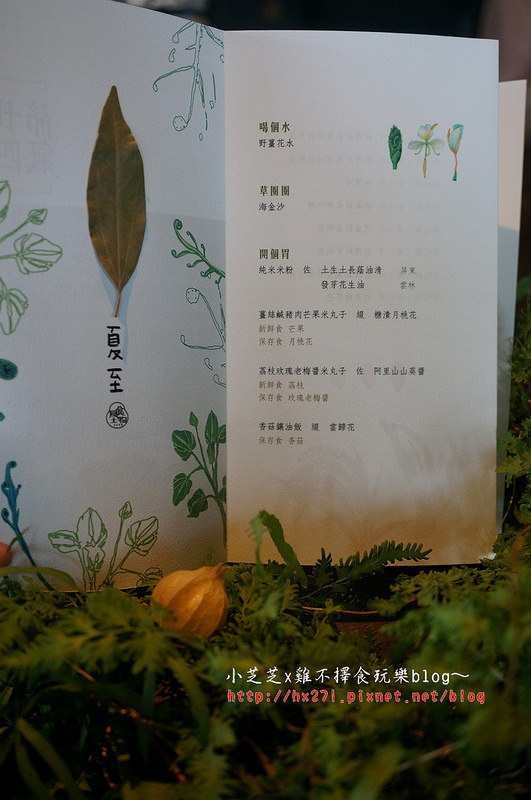 夏至
喝個水
野薑花水
草圈圈
海金沙
開個胃
純米米粉　佐　土生土長蔭油清　屏東
發芽花生油　雲林
薑絲鹹豬肉芒果米丸子　綴　糖漬月桃花
新鮮食 芒果
保存食 月桃花
荔枝玫瑰老梅醬米丸子　佐　阿里山山葵醬
新鮮食 荔枝
保存食 玫瑰老梅醬
香菇鑲油飯　綴　當歸花
保存食 香菇
小芝芝x雞不擇食玩樂blog～
http://hx27l.pixnet.net/blog